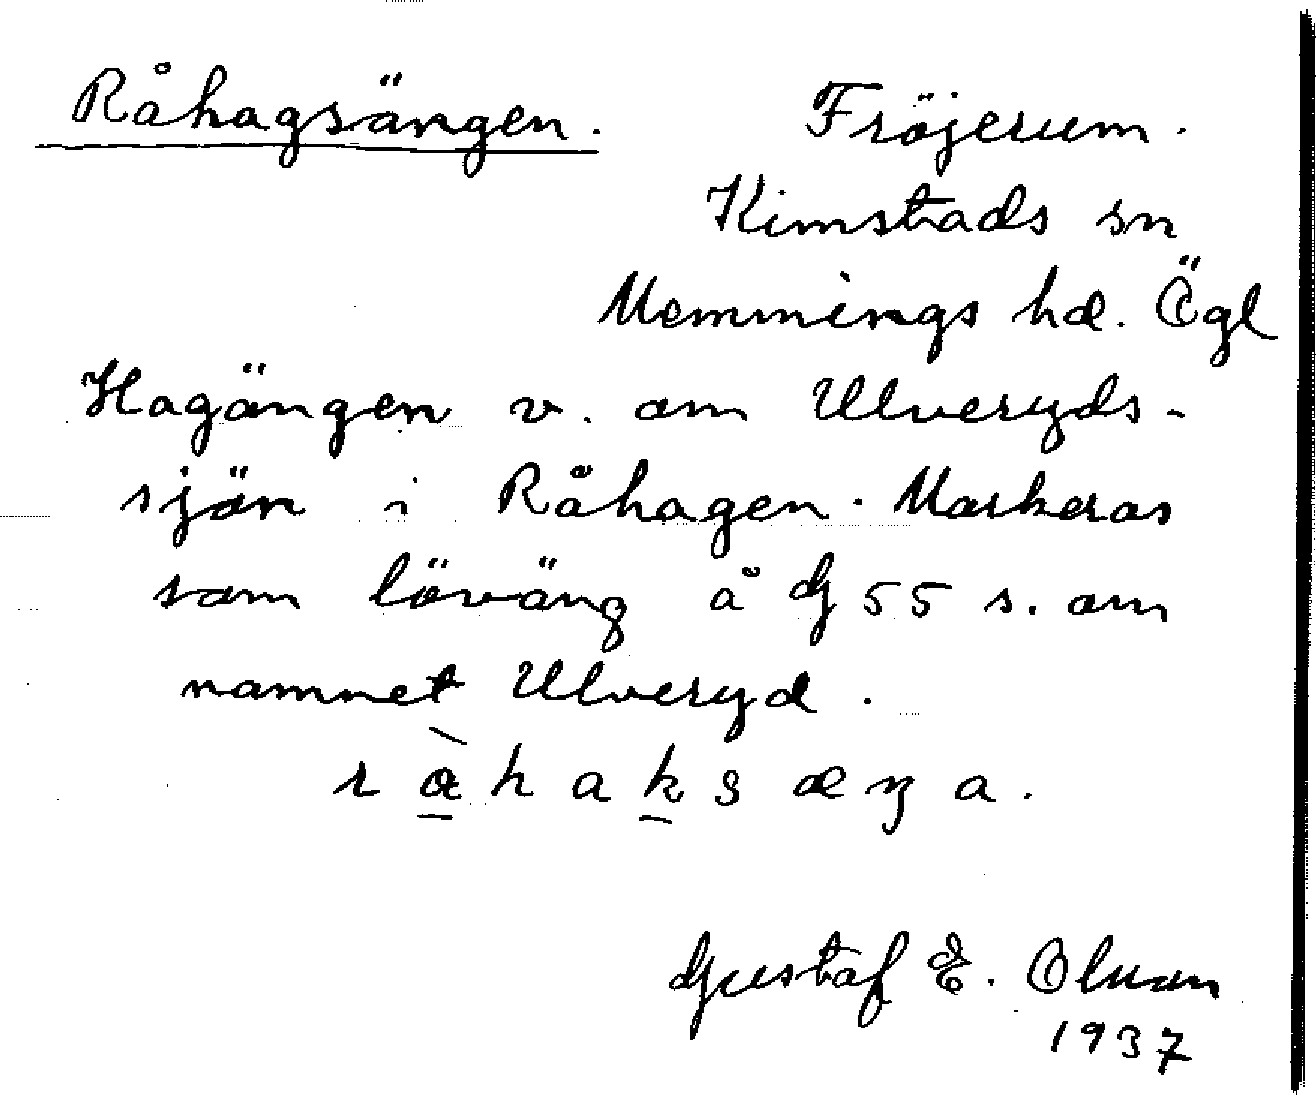 Råhagsängen. Fröjerum.
Kimstads sn
Memmings hd. Ögl
Hagängen v. om Ulveryds-
sjön i Råhagen. Markeras
som löväng å G 55 s. om
namnet Ulveryd.
r å̀ h a k s æ ŋ a.
Gustaf E. Olsson
1937